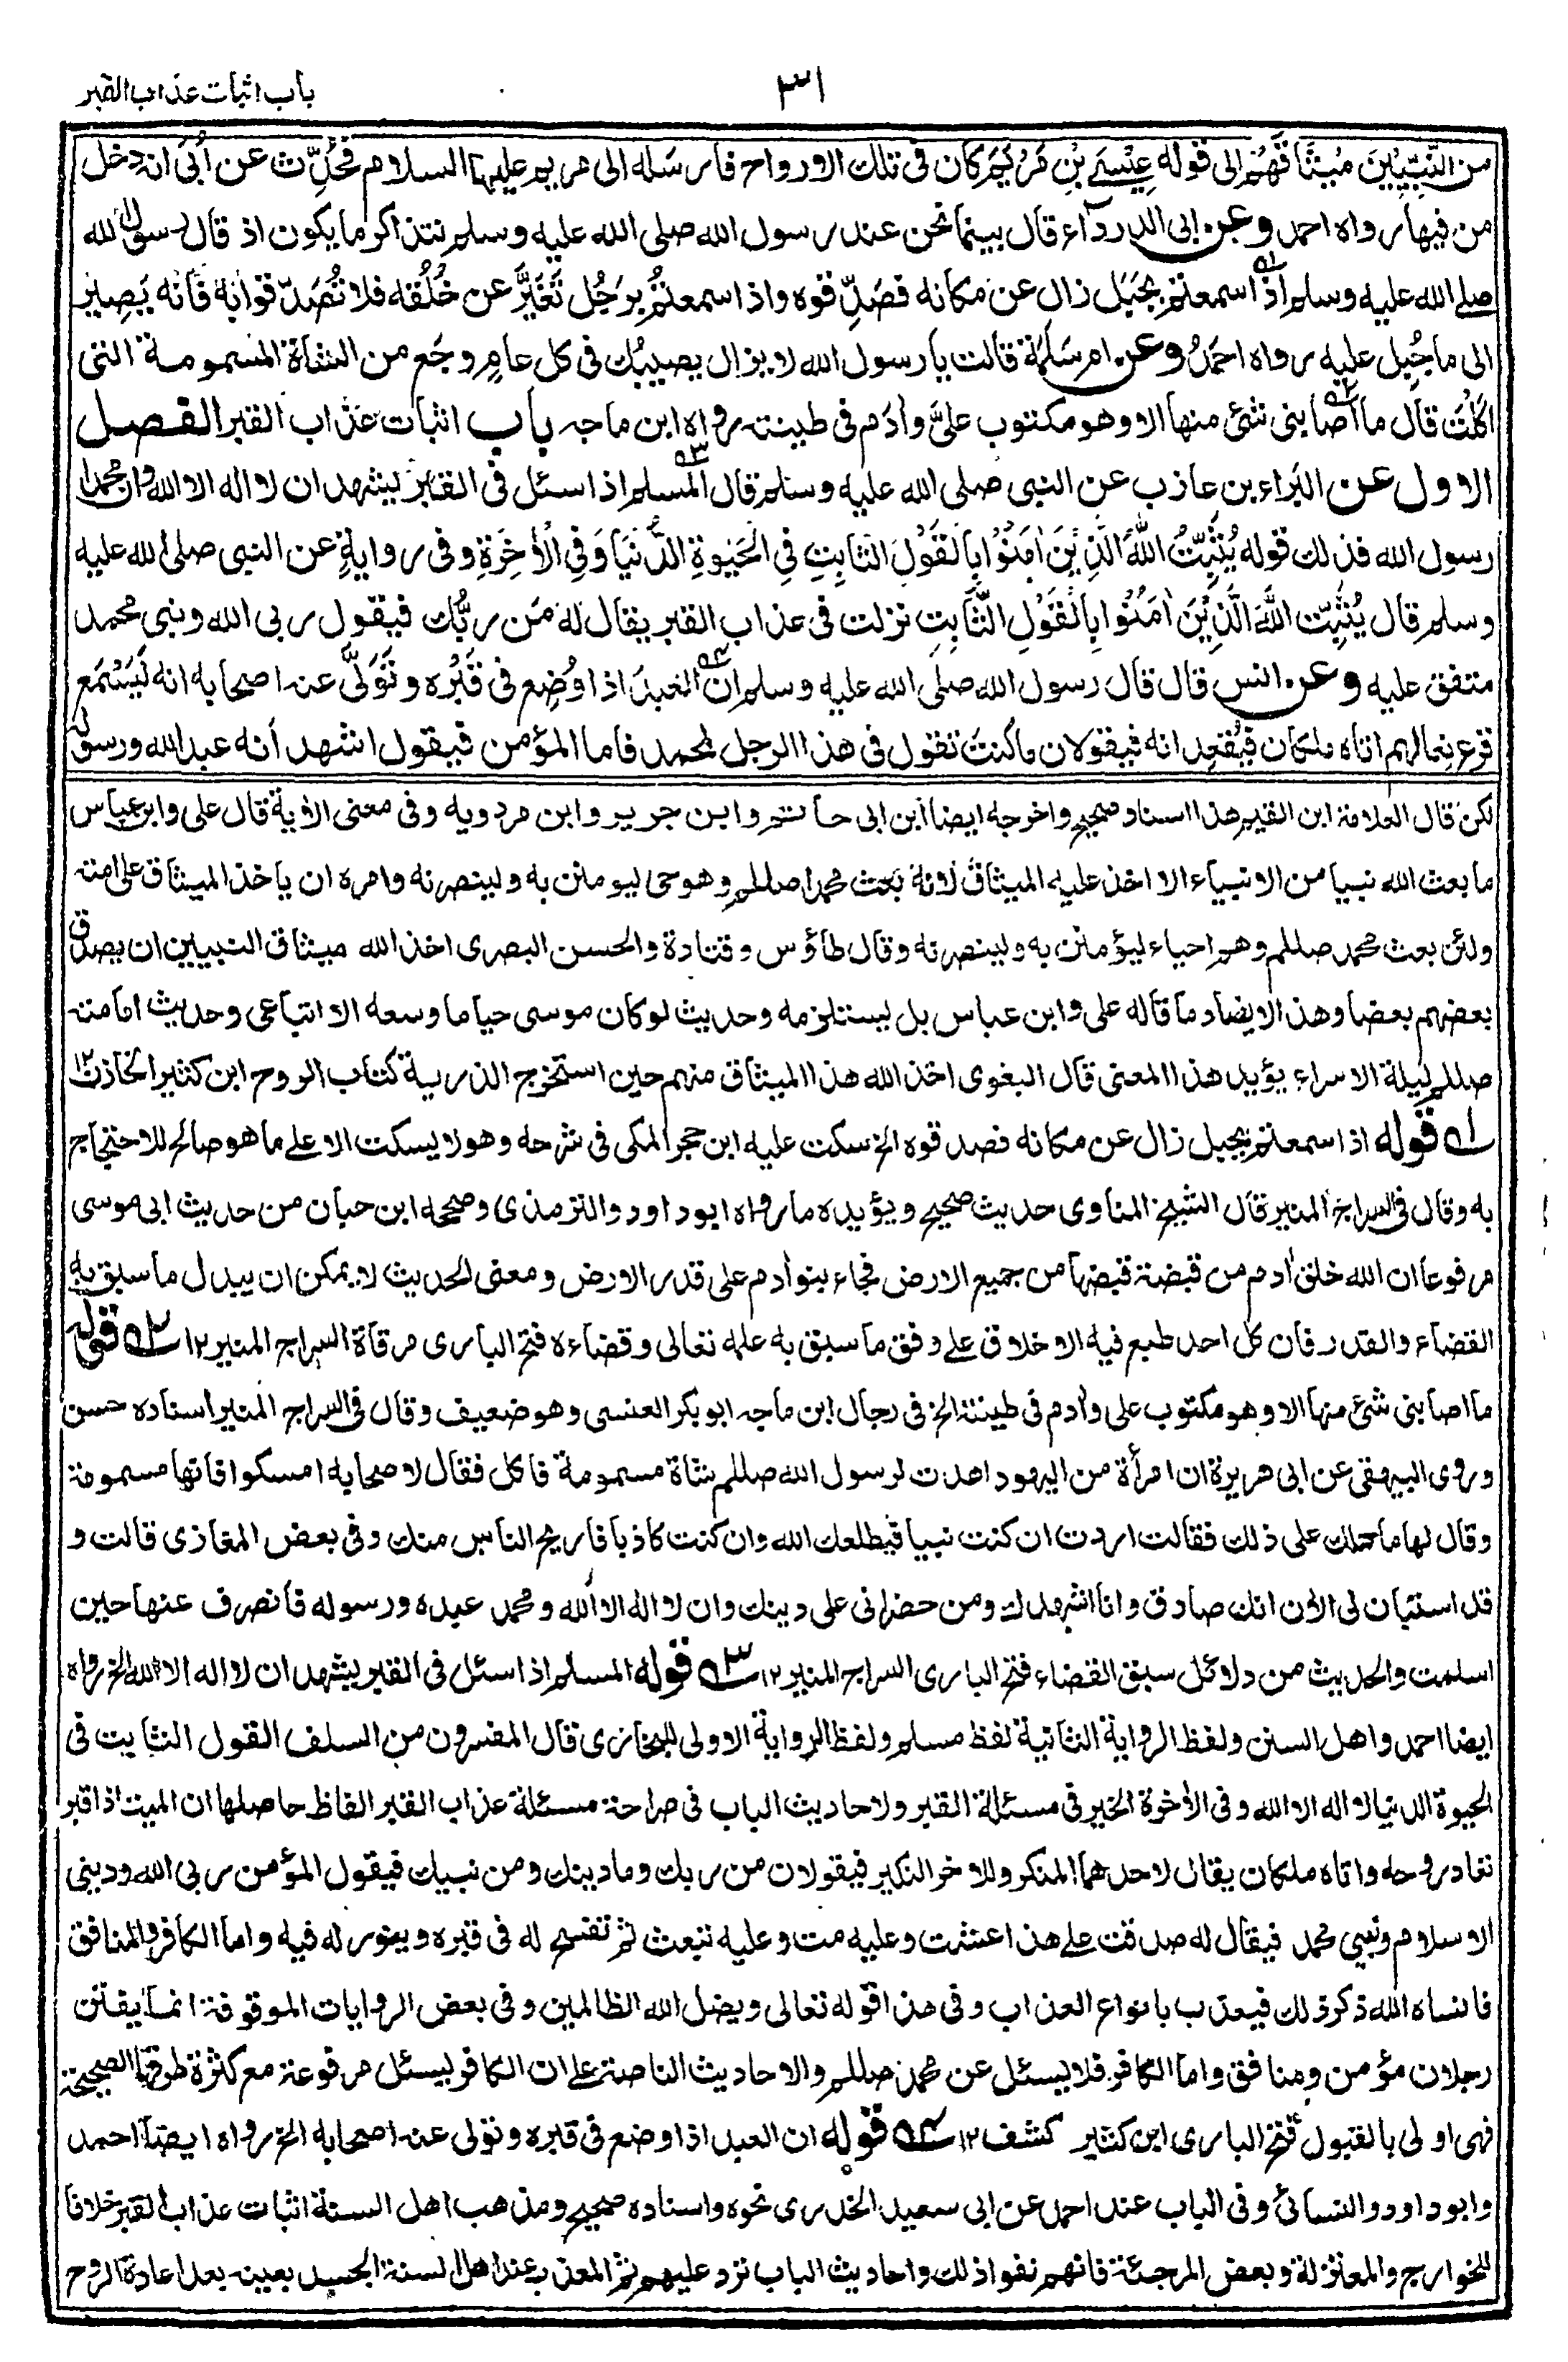 باب اثبات عذاب القبر
٣١
من النَّبِيِّيْنَ مِيْثَاقَهُمْ الى قوله عِيْسَى بْنِ مَرْيَمَ كان فى تلك الارواح فارسَله الى مريم عليهما السلام فحُدِّث عن اُبَىّ انه دخل
من فيها رواه احمد وعن ابى الدرداء قال بينما نحن عند رسول الله صلى الله عليه وسلم نتذاكر ما يكون اذ قال رسول الله
صلى الله عليه وسلم اذا سمعتم بجَبَل زال عن مكانه فصَدِّقوه واذا سمعتمُ برَجُل تَغَيَّرَ عن خُلُقه فلا تُصَدِّقوا به فانه يَصِيْر
الى ما جُبِل عليه رواه احمدُ وعن ام سَلَمَة قالت يا رسول الله لا يزال يصيبُك فى كل عامٍ وجَع من الشاة المسمومة التى
اكلْتَ قال ما اصابنى شئ منها الا وهو مكتوب علىَّ وآدم فى طينته رواه ابن ماجه باب اثبات عذاب القبر الفصل
الاول عن البَراء بن عازب عن النبى صلى الله عليه وسلم قال المسلم اذا سئل فى القبر يشهد ان لا اله الا الله وان محمدا
رسول الله فذلك قوله يُثَبِّتُ اللّٰهُ الَّذِيْنَ اٰمَنُوْا بِالْقَوْلِ الثَّابِتِ فِى الْحَيٰوةِ الدُّنْيَا وَفِى الْاٰخِرَةِ وفى روايةٍ عن النبى صلى الله عليه
وسلم قال يُثَبِّتُ اللّٰهُ الَّذِيْنَ اٰمَنُوْا بِالْقَوْلِ الثَّابِتِ نزلت فى عذاب القبر يقال له مَن ربُّك فيقول ربى الله ونبى محمد
متفق عليه وعن انس قال قال رسول الله صلى الله عليه وسلم ان العبدَ اذا وُضِع فى قَبْره وتَوَلّىٰ عنه اصحابه انه لَيَسْمَع
قرع نِعالهم اتاه ملكان فيُقعِدانه فيقولان ما كنتَ تقول فى هذا الرجل لمحمد فاما المؤمن فيقول اشهد انه عبد الله ورسوله
لكن قال العلامة ابن القيم هذا اسناد صحيح واخرجه ايضا ابن ابى حاتم وابن جرير وابن مردويه وفى معنى الاٰية قال على وابن عباس
ما بعث الله نبيا من الانبياء الا اخذ عليه الميثاق لانه بعث محمدا صللم وهو حى ليومنن به ولينصرنه وامره ان ياخذ الميثاق على امته
ولئن بعث محمد صللم وهم احياء ليؤمنن به ولينصرنه وقال طاؤس وقتادة والحسن البصرى اخذ الله ميثاق النبيين ان يصدق
بعضهم بعضا وهذا لا يضاد ما قاله على وابن عباس بل يستلزمه وحديث لو كان موسى حيا ما وسعه الا اتباعى وحديث امامته
صللم ليلة الاسراء يؤيد هذا المعنى قال البغوى اخذ الله هذا الميثاق منهم حين استخرج الذرية كتاب الروح ابن كثير الخازن ١٢
٥١ قوله اذا سمعتم بجبل زال عن مكانه فصدقوه الخ سكت عليه ابن حجر المكى فى شرحه وهو لا يسكت الا على ما هو صالح للاحتجاج
به وقال فى السراج المنير قال الشيخ المناوى حديث صحيح ويؤيده ما رواه ابو داود والترمذى وصححه ابن حبان من حديث ابى موسى
مرفوعا ان الله خلق اٰدم من قبضة قبضها من جميع الارض فجاء بنو اٰدم على قدر الارض ومعنى الحديث لا يمكن ان يبدل ما سبق به
القضاء والقدر فان كل احد طبع فيه الاخلاق على وفق ما سبق به علمه تعالى وقضاءه فتح البارى مرقاة السراج المنير ١٢ ٥٢ قوله
ما اصابنى شئ منها الا وهو مكتوب على واٰدم فى طينته الخ فى رجال ابن ماجه ابو بكر العنسى وهو ضعيف وقال فى السراج المنير اسناده حسن
وروى البيهقى عن ابى هريرة ان امرأة من اليهود اهدت لرسول الله صللم شاة مسمومة فاكل فقال لاصحابه امسكوا فانها مسمومة
وقال لها ما حملك على ذلك فقالت اردت ان كنت نبيا فيطلعك الله وان كنت كاذبا فاريح الناس منك وفى بعض المغازى قالت و
قد استبان لى الاٰن انك صادق وانا اشهدك ومن حضر انى على دينك وان لا اله الا الله ومحمد عبده ورسوله فانصرف عنها حين
اسلمت والحديث من دلائل سبق القضاء فتح البارى السراج المنير ١٢ ٥٣ قوله المسلم اذا سئل فى القبر يشهد ان لا اله الا الله الخ رواه
ايضا احمد واهل السنن ولفظ الرواية الثانية لفظ مسلم ولفظ الرواية الاولى للبخارى قال المفسرون من السلف القول الثابت فى
الحيوة الدنيا لا اله الا الله وفى الاٰخرة الخير فى مسئلة القبر ولاحاديث الباب فى صراحة مسئلة عذاب القبر الفاظ حاصلها ان الميت اذا قبر
تعاد روحه واتاه ملكان يقال لاحدهما المنكر وللاٰخر النكير فيقولان من ربك وما دينك ومن نبيك فيقول المؤمن ربى الله ودينى
الاسلام ونبيى محمد فيقال له صدقت على هذا عشت وعليه مت وعليه تبعث ثم تفسح له فى قبره وينور له فيه واما الكافر والمنافق
فانساه الله ذكر ذلك فيعذب بانواع العذاب وفى هذا قوله تعالى ويضل الله الظالمين وفى بعض الروايات الموقوفة انما يفتن
رجلان مؤمن ومنافق واما الكافر فلا يسئل عن محمد صللم والاحاديث الناصة على ان الكافر يسئل مرفوعة مع كثرة طرقها الصحيحة
فهى اولى بالقبول فتح البارى ابن كثير كشف ١٢ ٥٤ قوله ان العبد اذا وضع فى قبره وتولى عنه اصحابه الخ رواه ايضا احمد
وابو داود والنسائى وفى الباب عند احمد عن ابى سعيد الخدرى نحوه واسناده صحيح ومذهب اهل السنة اثبات عذاب القبر خلافا
للخوارج والمعتزلة وبعض المرجئة فانهم نفوا ذلك واحاديث الباب ترد عليهم ثم المعذب عند اهل السنة الجسد بعينه بعد اعادة الروح